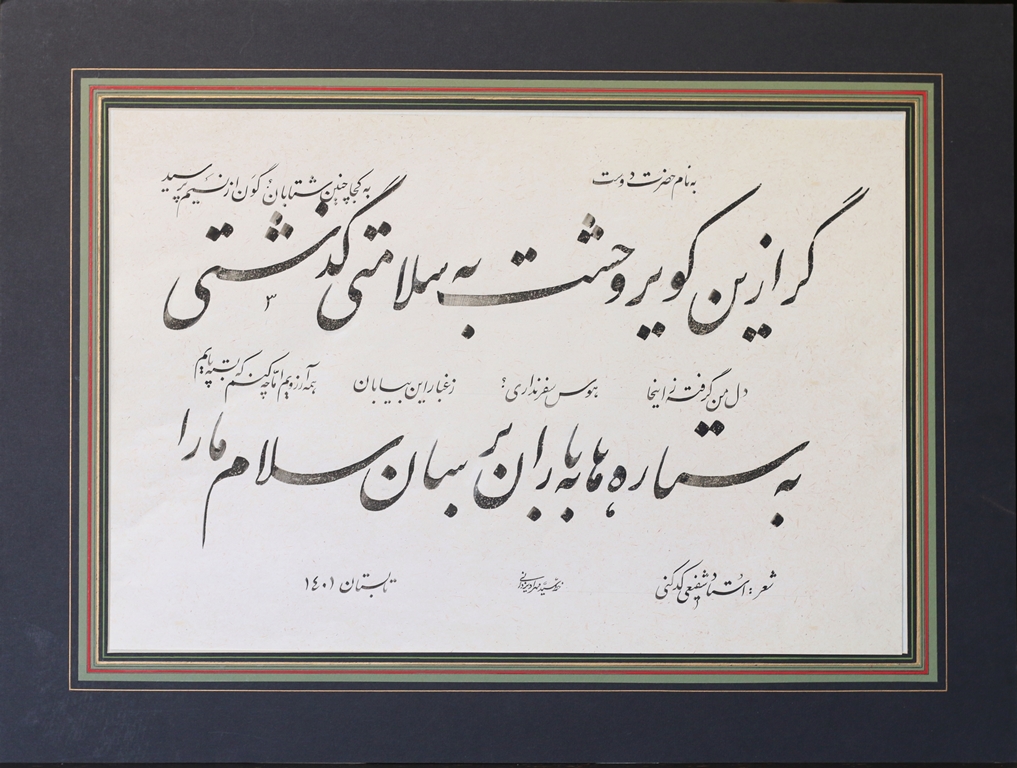 به نام حضرت دوست
به کجا چنین شتابان گون از نسیم پرسید
گر ازین کویر وحشت به سلامتی گذشتی
دل من گرفته ز اینجا هوس سفر نداری؟ ز غبار این بیابان همه آرزویم اما چه کنم که بسته پایم
به ستاره ها، به باران برسان سلام ما را
شعر: استاد شفیعی کدکنی تابستان ۱۴۰۱